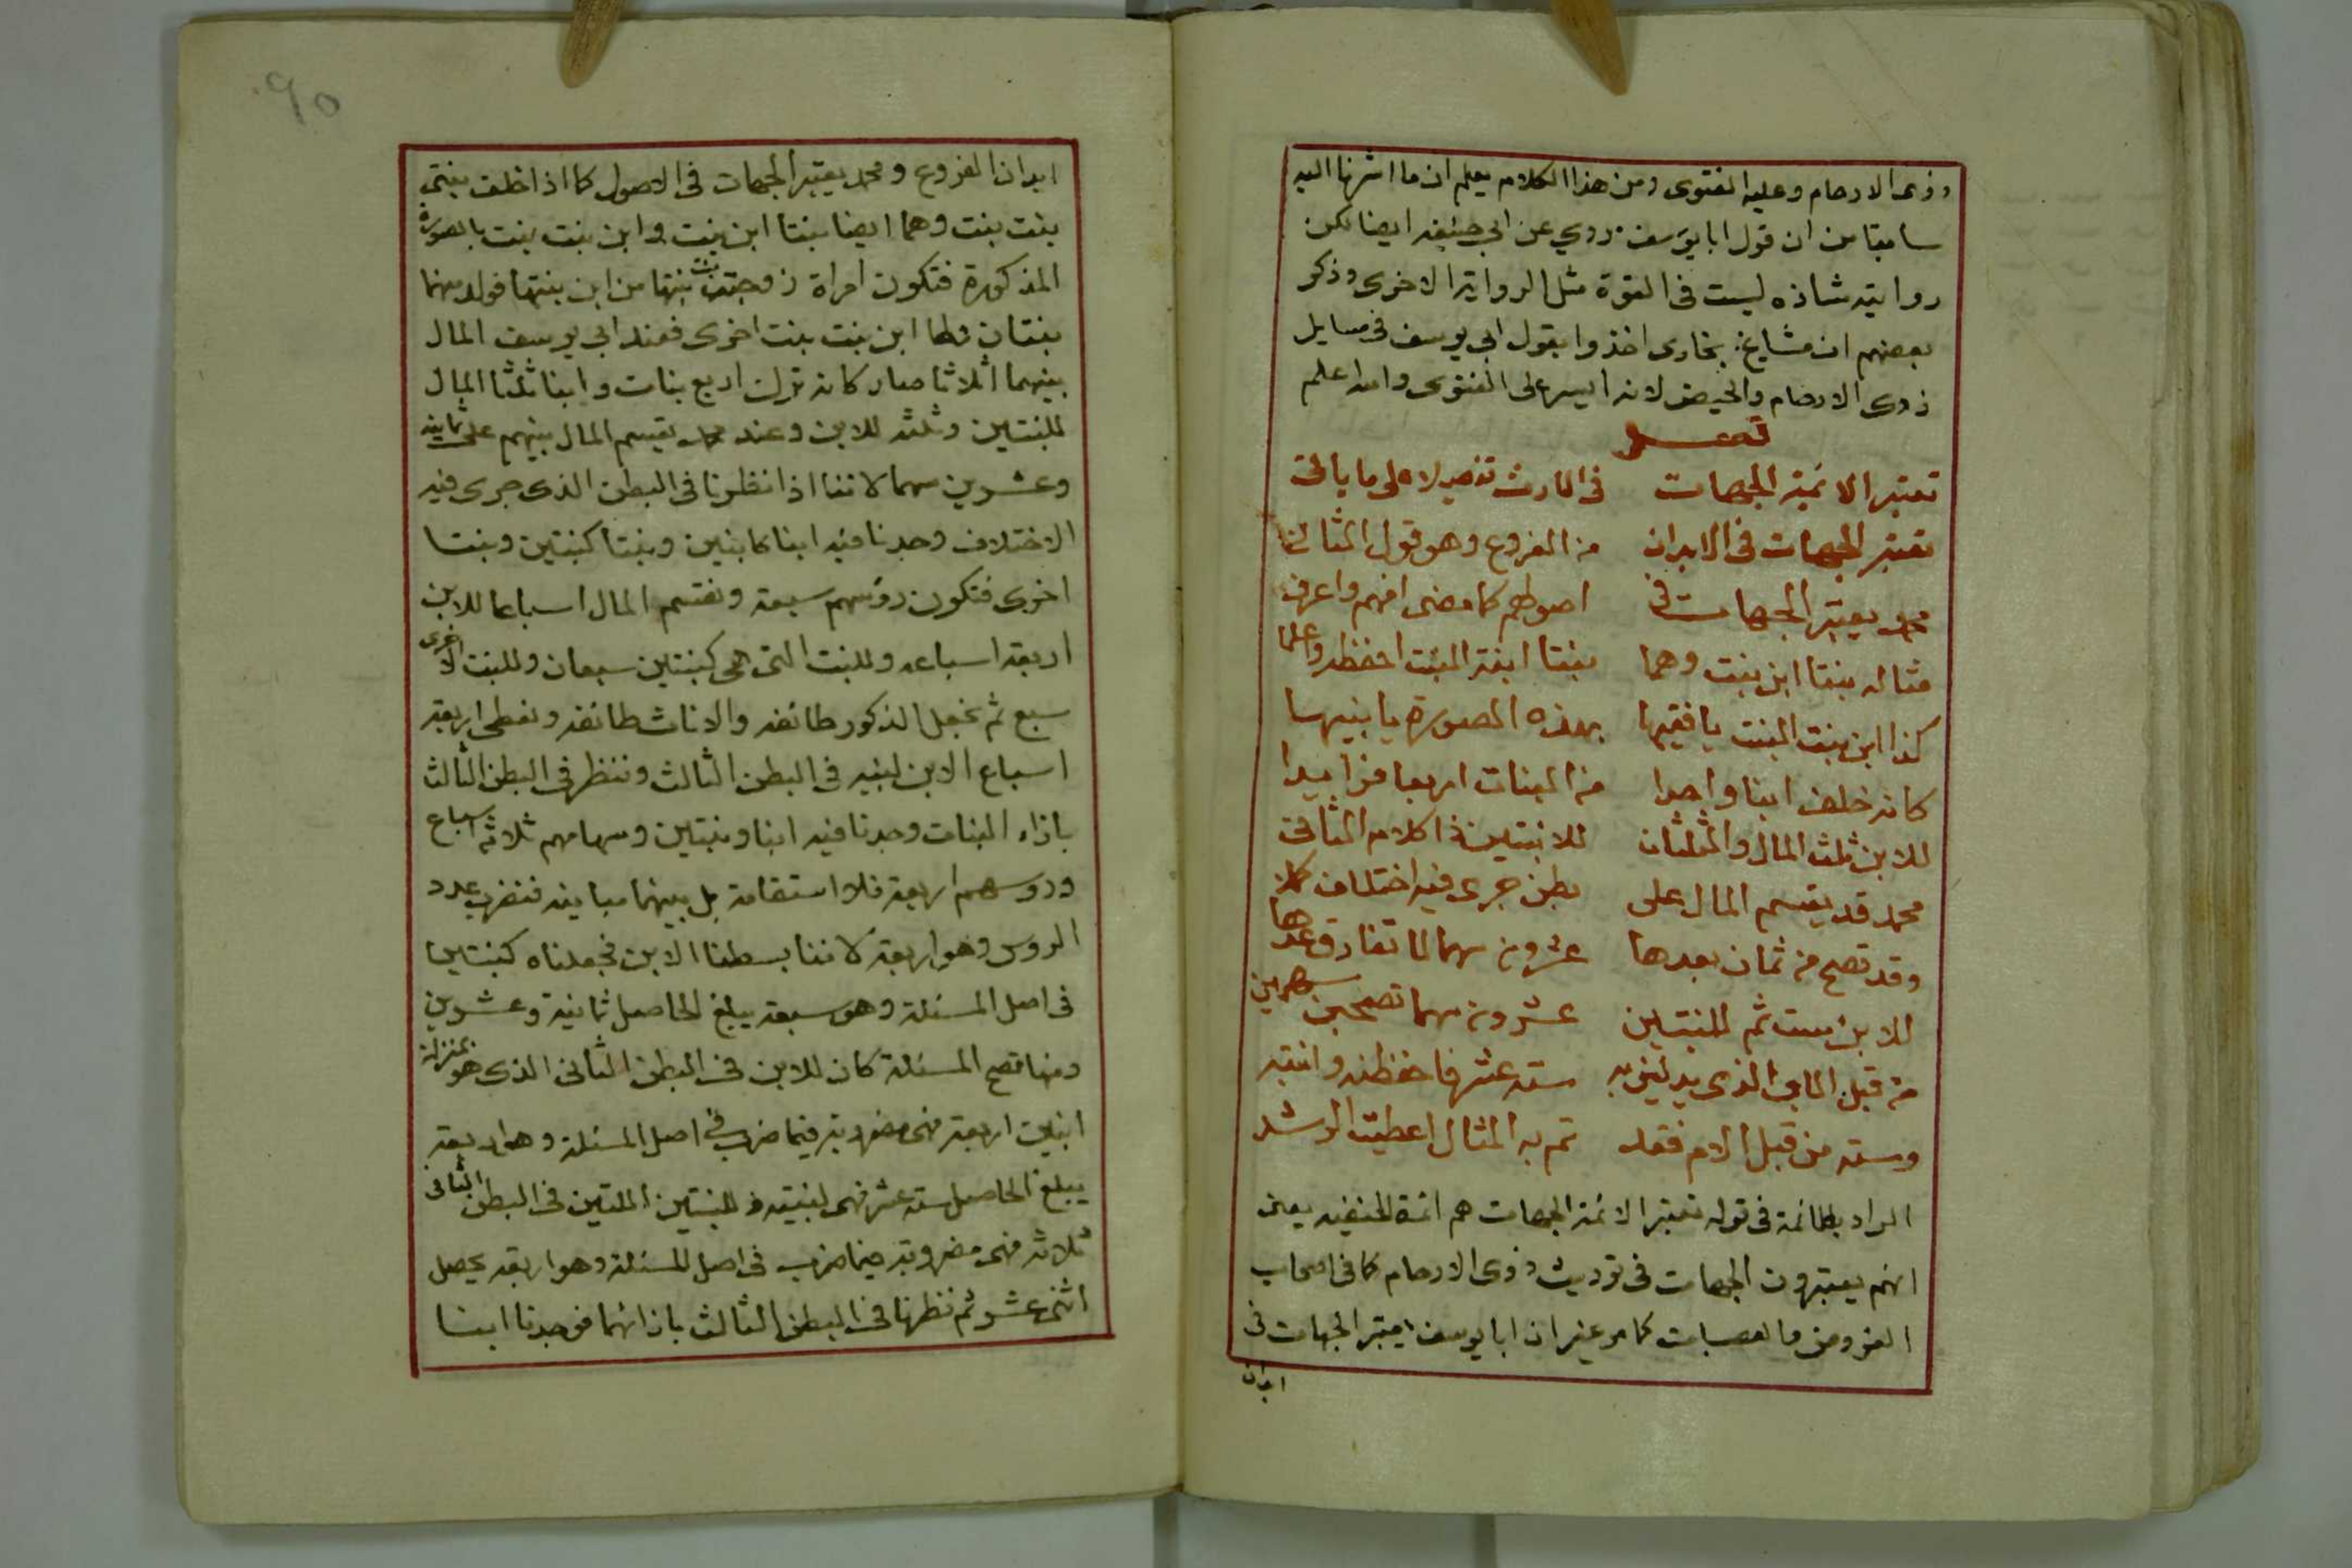 وذوى الارحام وعليه الفتوى ومن هذا الكلام يعلم ان ما اشرنا اليه
سابقا من ان قول ابا يوسف روي عن ابي حنيفه ايضا لكن
روايته شاذه ليست فى القوة مثل الرواية الاخرى وذكر
بعضهم ان مشايخ بخارى اخذوا بقول ابى يوسف فى مسايل
ذوى الارحام والحيض لانه ايسر على المفتوى والله اعلم
فصل
تعتبر الائمة الجهات فى الارث تفصيلا على ما ياتى
تعتبر الجهات فى الابدان من الفروع وهو قول الثانى
محمد يعتبر الجهات فى اصولهم كما مضى افهم واعرف
مثاله بنتا ابن بنت وهما بنتا ابنة البنت احفظه واعلما
كذا ابن بنت البنت يا فقيها بهذه الصورة يا نبيها
كانه خلف ابنا واحدا من البنات اربعا
للابن ثلث المال والثلثان للابنتين ذا كلام الثانى
محمد قد يقسم المال على بطن جرى فيه اختلاف
وقد تصح من ثمان بعدها عشرون سهما لا تفارق عدها
للابن ست ثم للبنتين عشرون سهما تصحيحين
من قبل الاب الذى يدلين به سته عشر فاحفظنه وانتبه
وسته من قبل الام فقد تم به المثال اعطيت الرشد
المراد بالائمة فى قوله تعتبر الائمة الجهات هم ائمة الحنفيه يعنى
انهم يعتبرون الجهات فى توريث ذوى الارحام كما فى اصحاب
الفروض والعصبات كما مر غير ان ابا يوسف يعتبر الجهات فى
ابدان
٩٥
ابدان الفروع ومحمد يعتبر الجهات فى الاصول كما اذا خلف بنتى
بنت بنت وهما ايضا بنتا ابن بنت وابن بنت بنت بالصورة
المذكورة فتكون امراة زوجت بنت بنتها من ابن بنتها فولد منهما
بنتان ولها ابن بنت بنت اخرى فعند ابي يوسف المال
بينهما اثلاثا صار كانه ترك اربع بنات وابنا ثلثا المال
للبنتين وثلثه للابن وعند محمد يقسم المال بينهم على ثمانية
وعشرين سهما لاننا اذا نظرنا فى البطن الذى جرى فيه
الاختلاف وجدنا فيه ابنا كابنين وبنتا كبنتين وبنتا
اخرى فتكون رؤسهم سبعة ونقسم المال اسباعا للابن
اربعة اسباعه وللبنت التى هى كبنتين سبعان وللبنت الاخرى
سبع ثم نجعل الذكور طائفه والاناث طائفه ونعطى اربعة
اسباع الابن لبنتيه فى البطن الثالث وننظر فى البطن الثالث
بازاء البنات وجدنا فيه ابنا وبنتين وسهامهم ثلاثة اسباع
ورؤسهم اربعة فلا استقامة بل بينهما مباينه فنضرب عدد
الروس وهو اربعة لاننا بسطنا الابن فجعلناه كبنتين
فى اصل المسئلة وهو سبعة يبلغ الحاصل ثمانية وعشرين
ومنها تصح المسئلة كان للابن فى البطن الثانى الذى هو بمنزلة
ابنين اربعة فهى مضروبة فيما ضرب فى اصل المسئلة وهو اربعة
يبلغ الحاصل سته عشر فهى لبنتيه وللبنتين اللتين فى البطن الثانى
ثلاثه فهى مضروبة فيما ضرب فى اصل المسئلة وهو اربعة يحصل
اثنى عشر ثم نظرنا فى البطن الثالث بازائهما فوجدنا ابنا